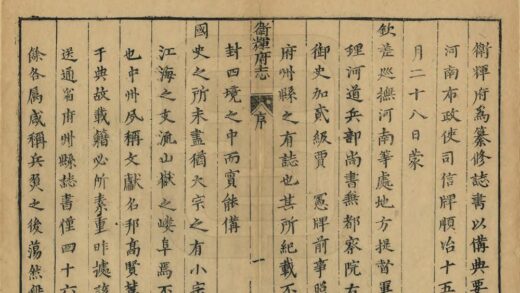 衛輝府爲纂修誌書以備典要
河南布政使司信牌順治十五
月二十八日蒙
欽差巡撫河南等處地方提督軍
理河道兵部尚書兼都察院右
御史加貳級賈 憲牌前事照
府州縣之有誌也其所紀載不
封四境之中而實能備
國史之所未盡猶大宗之有小宗
江海之支流山嶽之嶁阜焉不
也中州夙稱文獻名邦高賢
于典故載籍必所素重昨據
送通省府州縣誌書僅四十六
餘各属咸稱兵燹之後蕩然
衛輝府志
序
一